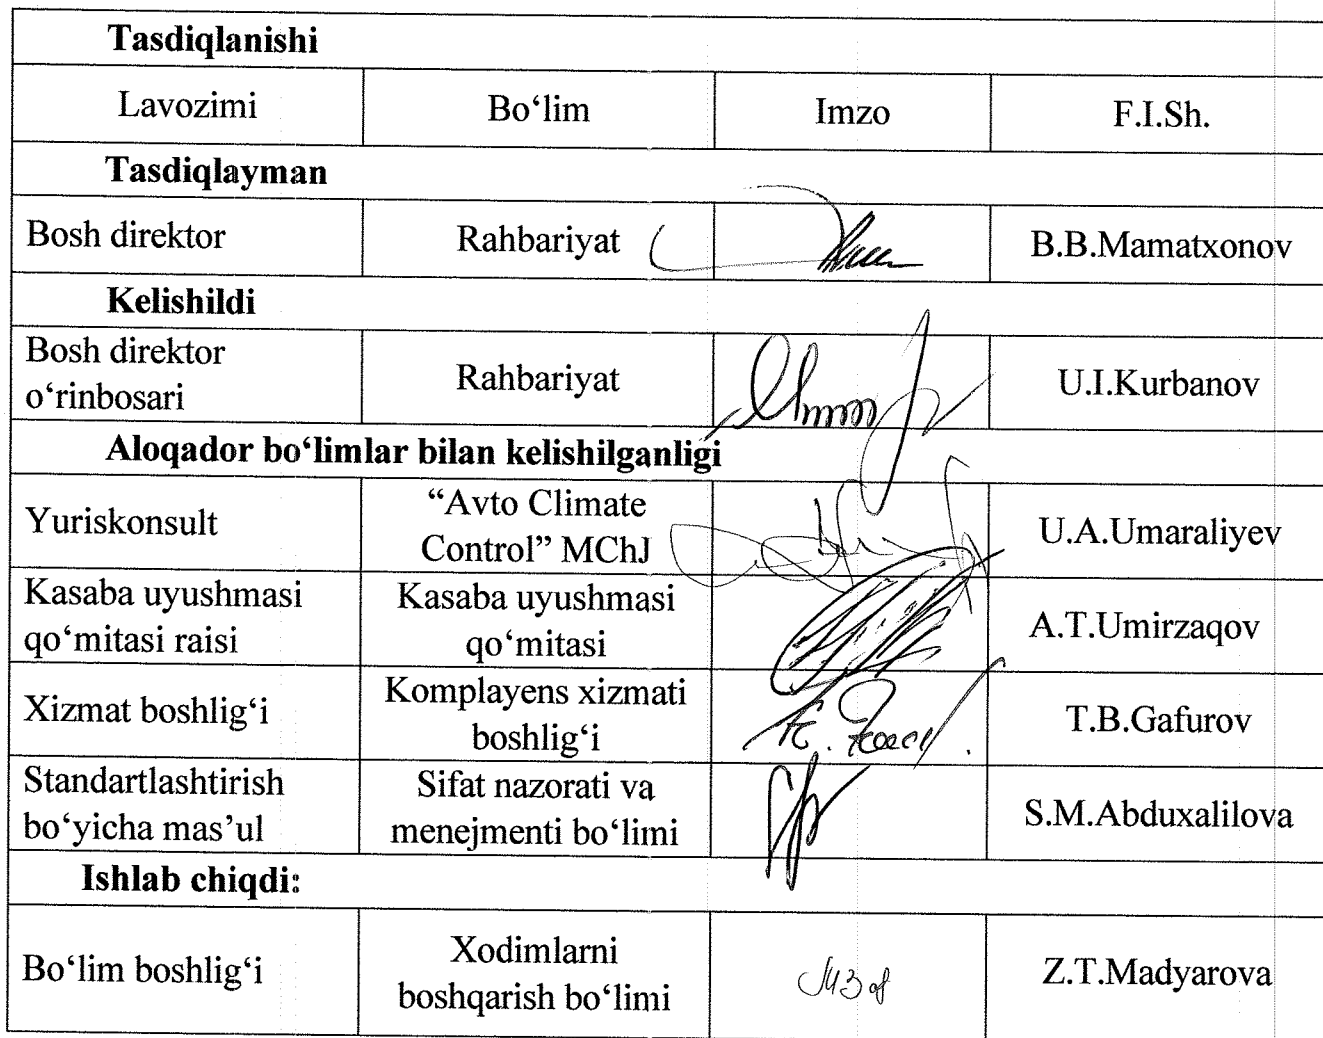 Tasdiqlanishi
Lavozimi Bo‘lim Imzo F.I.Sh.
Tasdiqlayman
Bosh direktor Rahbariyat B.B.Mamatxonov
Kelishildi
Bosh direktor
o‘rinbosari Rahbariyat U.I.Kurbanov
Aloqador bo‘limlar bilan kelishilganligi
Yuriskonsult “Avto Climate
Control” MChJ U.A.Umaraliyev
Kasaba uyushmasi
qo‘mitasi raisi Kasaba uyushmasi
qo‘mitasi A.T.Umirzaqov
Xizmat boshlig‘i Komplayens xizmati
boshlig‘i T.B.Gafurov
Standartlashtirish
bo‘yicha mas’ul Sifat nazorati va
menejmenti bo‘limi S.M.Abduxalilova
Ishlab chiqdi:
Bo‘lim boshlig‘i Xodimlarni
boshqarish bo‘limi Z.T.Madyarova